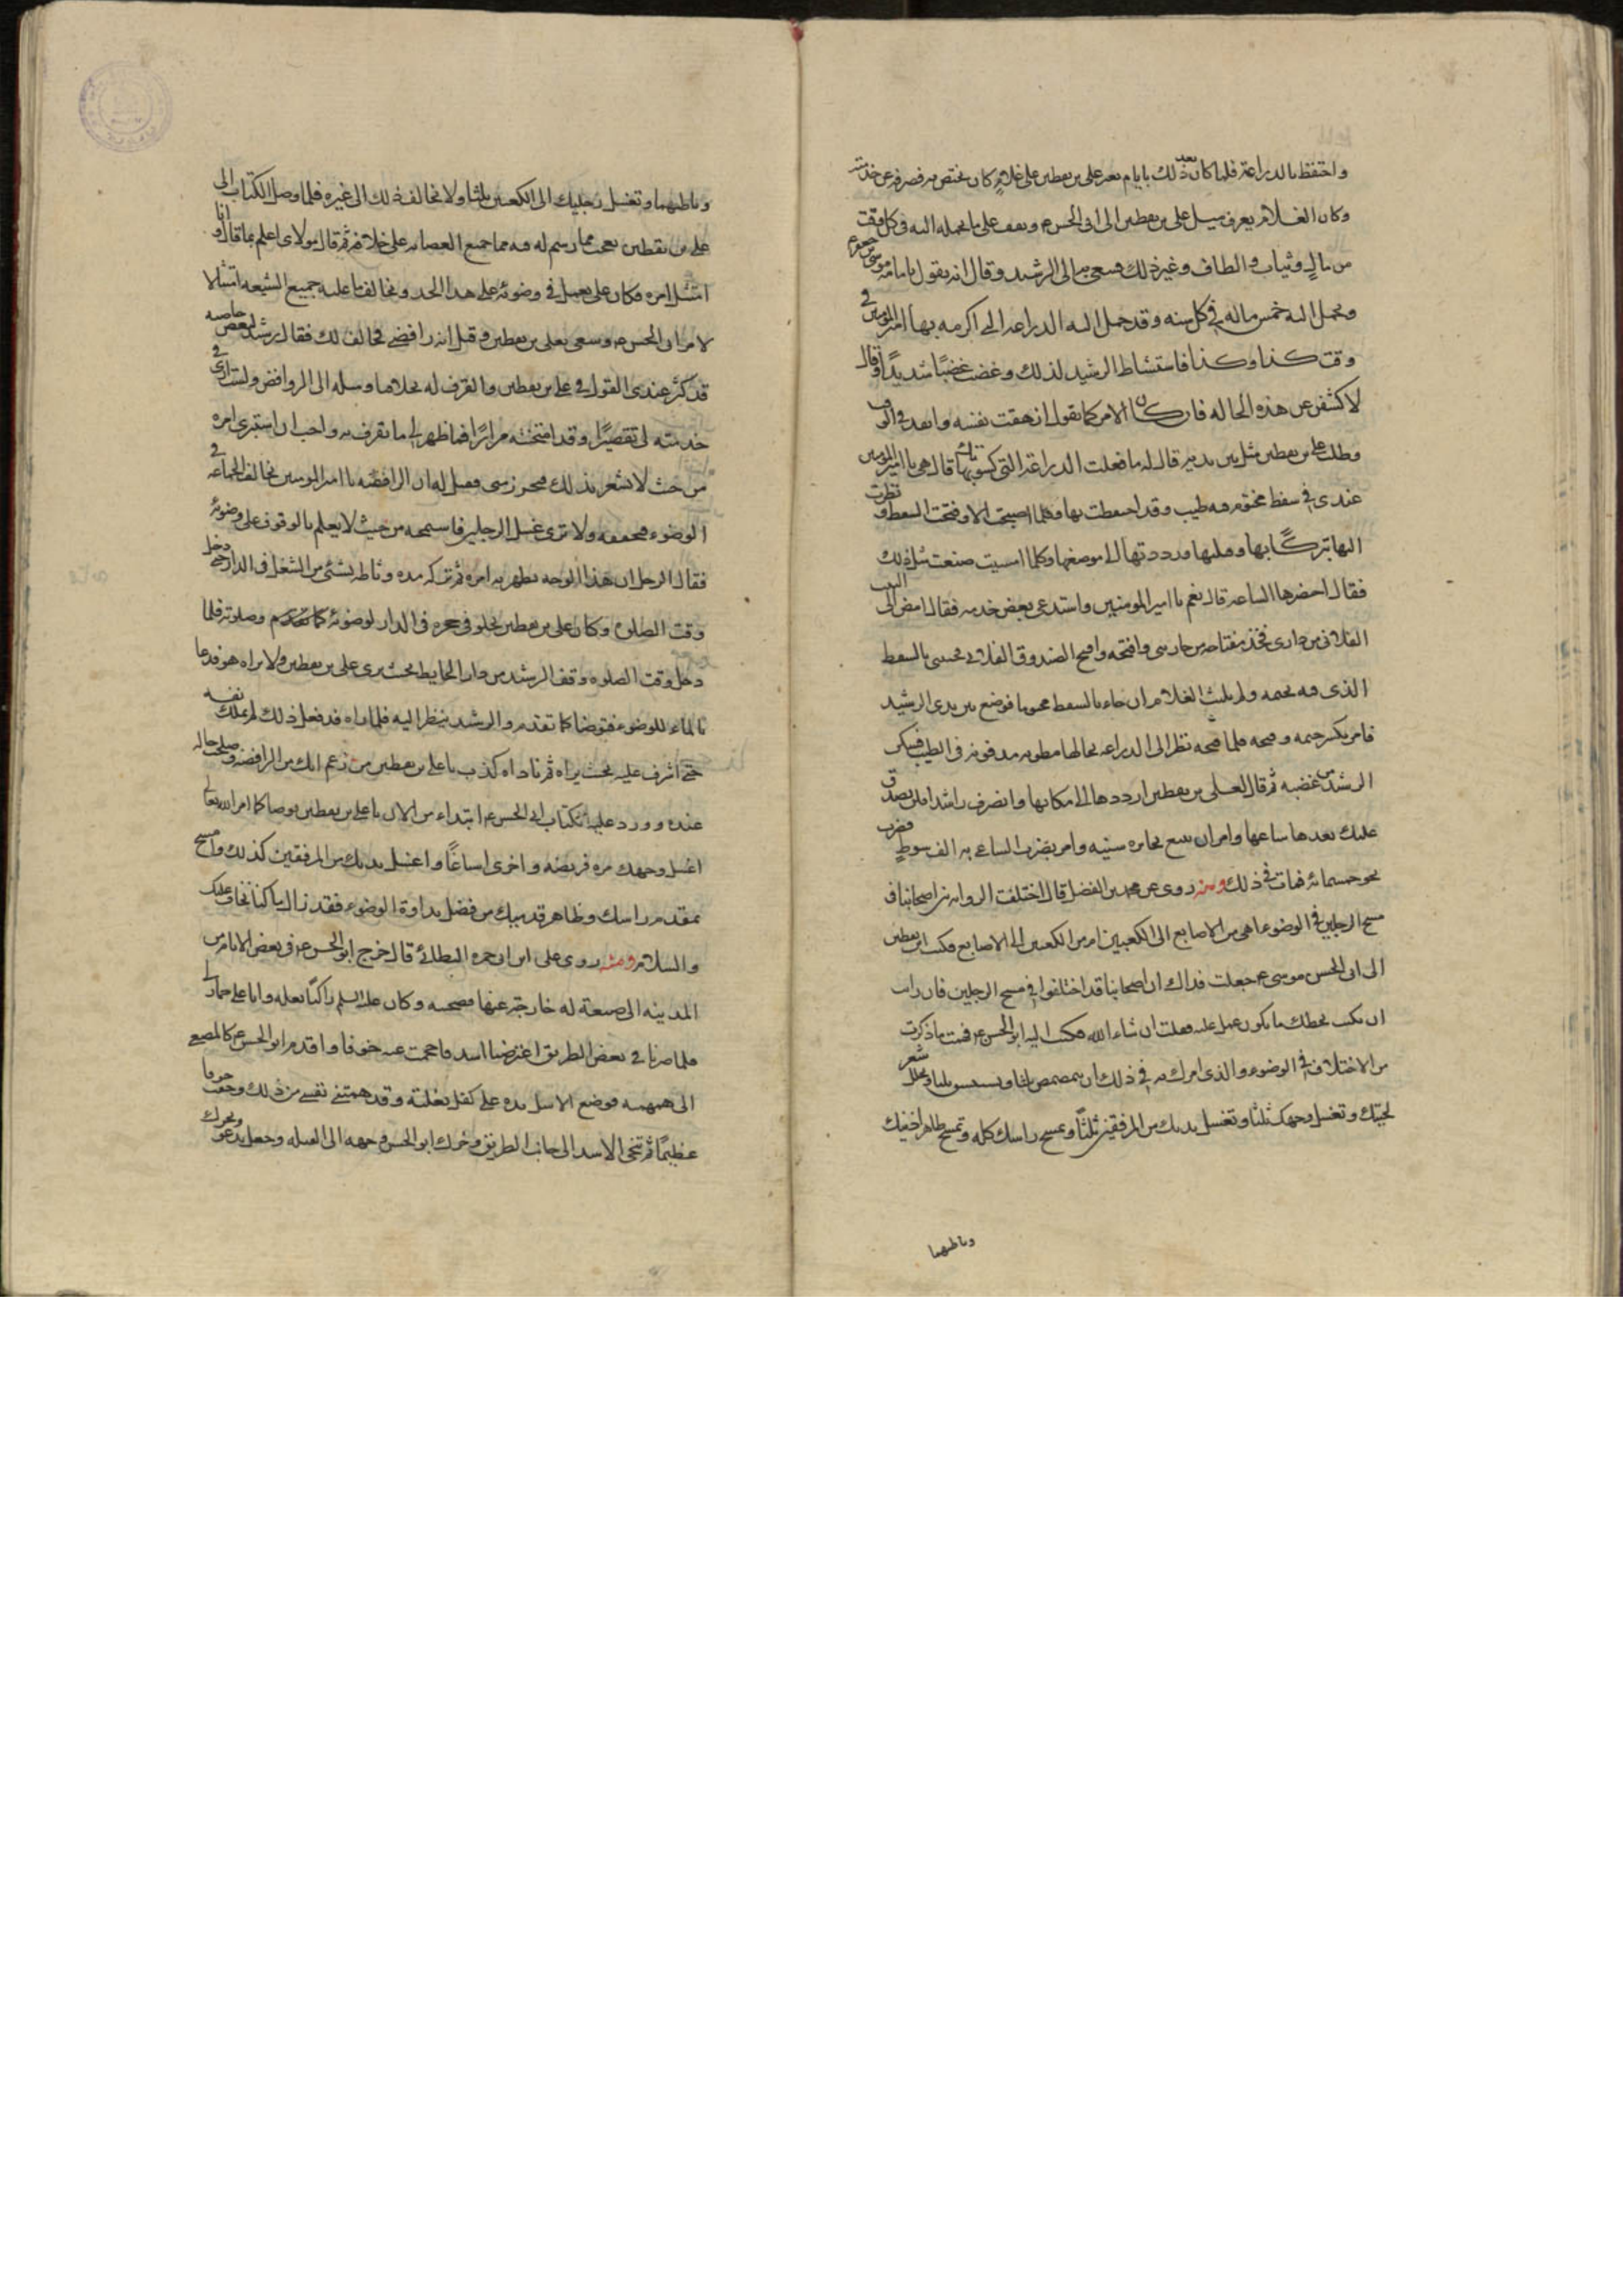 واحتفظ بالدراعة فلما كان بعد ذلك بايام تغير على بن يقطين على غلام كان يختص به فصرفه عن خدمته
وكان الغلام يعرف ميل على بن يقطين الى ابى الحسن ع ويقف على ما يحمله اليه فى كل وقت
من مال وثياب والطاف وغير ذلك فسعى به الى الرشيد وقال انه يقول بامامة موسى بن جعفر ع
ويحمل اليه خمس ماله فى كل سنه وقد حمل اليه الدراعه التى اكرمه بها امير المومنين فى
وقت كذا وكذا فاستشاط الرشيد لذلك وغضب غضبًا شديدًا وقال
لاكشفن عن هذه الحاله فان كان الامر كما تقول ازهقت نفسه وانفذ فى الوقت
وطلب على بن يقطين مثل بين يديه قال له ما فعلت الدراعة التى كسوتك بها قال هى يا امير المومنين
عندى فى سفط مختوم فيه طيب وقد احتفظت بها وكلما اصبحت الا وفتحت السفط ونظرت
اليها تبركًا بها وقبلتها ورددتها الى موضعها وكلما امسيت صنعت مثل ذلك
فقال احضرها الساعه قال نعم يا امير المومنين واستدعى بعض خدمه فقال امض الى البيت
الفلانى من دارى فخذ مفتاحه من جاريتى وافتحه وافتح الصندوق الفلانى فجئنى بالسفط
الذى فيه بختمه ولم يلبث الغلام ان جاء بالسفط مختوما فوضع بين يدى الرشيد
فامر بكسر ختمه وفتحه فلما فتحه نظر الى الدراعه بحالها مطويه مدفونه فى الطيب فسكن
الرشيد من غضبه ثم قال لعلى بن يقطين ارددها الى مكانها وانصرف راشدا فلن نصدق
عليك بعدها ساعيا وامر ان يتبع بجايزه سنيه وامر بضرب الساعى به الف سوط فضرب
نحو خمسمائه فمات فى ذلك ومنه روى عن محمد بن الفضل قال اختلفت الروايه بين اصحابنا فى
مسح الرجلين فى الوضوء اهى من الاصابع الى الكعبين ام من الكعبين الى الاصابع فكتب ابن يقطين
الى ابى الحسن موسى ع جعلت فداك ان اصحابنا قد اختلفوا فى مسح الرجلين فان رايت
ان تكتب بخطك ما يكون عملى عليه فعلت ان شاء الله فكتب اليه ابو الحسن ع فهمت ما ذكرت
من الاختلاف فى الوضوء والذى امرك به فى ذلك ان تمضمض ثلثا وتستنشق ثلثا وتخلل شعر
لحيتك وتغسل وجهك ثلثًا وتغسل يديك من المرفقين ثلثًا وتمسح راسك كله وتمسح ظاهر اذنيك
وباطنهما
وباطنهما وتغسل رجليك الى الكعبين ثلثا ولا تخالف ذلك الى غيره فلما وصل الكتاب الى
على بن يقطين تعجب مما رسم له فيه مما جميع العصابه على خلافه ثم قال مولاى اعلم بما قال وانا
امتثل امره فكان على يعمل فى وضوئه على هذا الحد ويخالف ما عليه جميع الشيعه امتثالا
لامر ابى الحسن ع وسعى بعلى بن يقطين وقيل انه رافضى مخالف لك فقال الرشيد لبعض خاصته
قد كثر عندى القول فى على بن يقطين والقرف له بخلافنا وميله الى الروافض ولست ارى فى
خدمته لى تقصيرًا وقد امتحنته مرارًا فما ظهر لى ما يقرف به واحب ان استبرى امره
من حيث لا يشعر بذلك فيحرز منى فقيل له ان الرافضه يا امير المومنين تخالف الجماعه فى
الوضوء فتخففه ولا ترى غسل الرجلين فامتحنه من حيث لا يعلم بالوقوف على وضوئه
فقال اجل ان هذا الوجه يظهر به امره ثم تركه مده وناطه بشئ من الشغل فى الدار حتى دخل
وقت الصلوة وكان على بن يقطين يخلو فى حجره فى الدار لوضوئه وصلوته فلما
دخل وقت الصلوه وقف الرشيد من وراء الحايط بحيث يرى على بن يقطين ولا يراه هو فدعا
بالماء للوضوء فتوضا كما تقدم والرشيد ينظر اليه فلما راه قد فعل ذلك لم يملك نفسه
حتى اشرف عليه بحيث يراه ثم ناداه كذب يا على بن يقطين من زعم انك من الرافضه وصلحت حاله
عنده وورد عليه كتاب ابى الحسن ع ابتداء من الان يا على بن يقطين توضا كما امر الله تعالى
اغسل وجهك مره فريضه واخرى اسباغًا واغسل يديك من المرفقين كذلك وامسح
بمقدم راسك وظاهر قدميك من فضل نداوة الوضوء فقد زال ما كنا نخاف عليك
والسلام ومنه روى على ابن ابى حمزه البطائنى قال خرج ابو الحسن ع فى بعض الايام من
المدينه الى ضيعة له خارجة عنها فصحبته وكان عليه السلم راكبًا بغله وانا على حمار لى
فلما صرنا فى بعض الطريق اعترضنا اسد فاحجمت عنه خوفا واقدم ابو الحسن ع كالمصغى
الى همهمته فوضع الاسد يده على كفل بغلته وقد همتنى نفسى من ذلك وخفت خوفا
عظيمًا ثم تنحى الاسد الى جانب الطريق وحول ابو الحسن وجهه الى القبله وجعل يدعو ويحرك